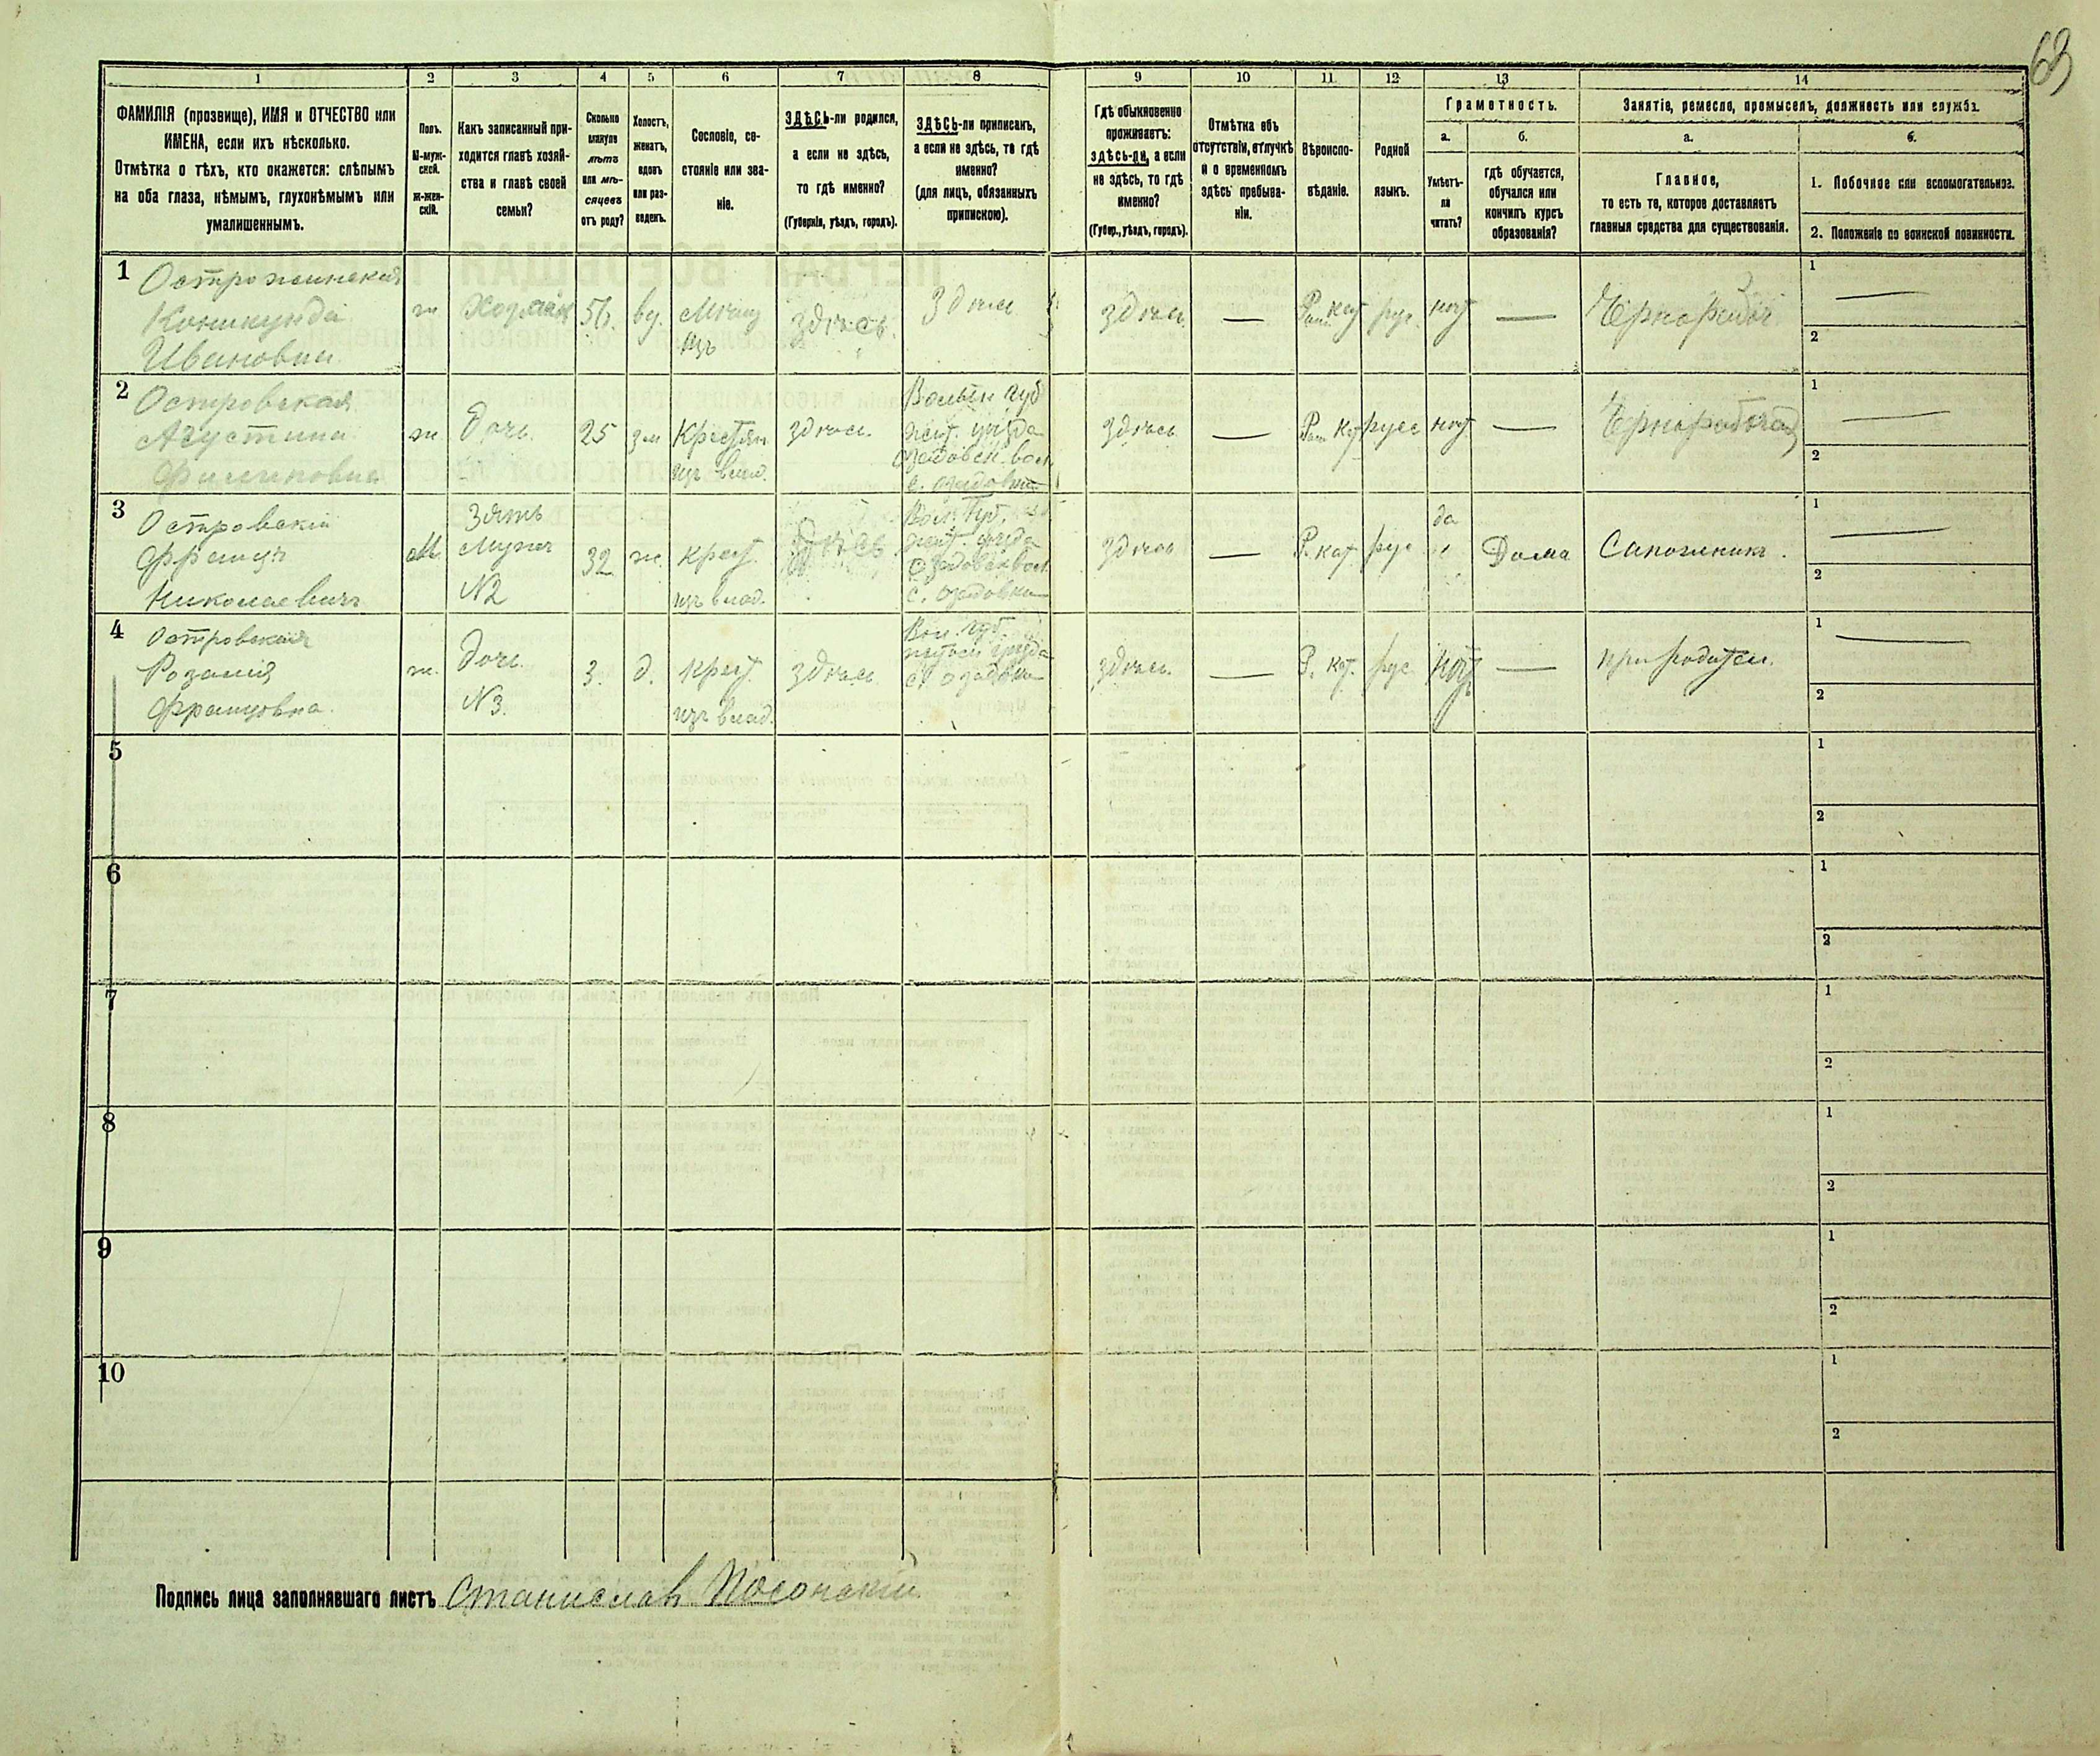 63
1 2 3 4 5 6 7 8 9 10 11 12 13 14
ФАМИЛІЯ (прозвище), ИМЯ и ОТЧЕСТВО или
ИМЕНА, если ихъ нѣсколько.
Отмѣтка о тѣхъ, кто окажется: слѣпымъ
на оба глаза, нѣмымъ, глухонѣмымъ или
умалишеннымъ.
Полъ.
М-муж-
ской.
ж-жен-
скій.
Какъ записанный при-
ходится главѣ хозяй-
ства и главѣ своей
семьи?
Сколько
минуло
лѣтъ
или мѣ-
сяцевъ
отъ роду?
Холостъ,
женатъ,
вдовъ
или раз-
веденъ.
Сословіе, со-
стояніе или зва-
ніе.
ЗДѢСЬ-ли родился,
а если не здѣсь,
то гдѣ именно?
(Губернія, уѣздъ, городъ).
ЗДѢСЬ-ли приписанъ,
а если не здѣсь, то гдѣ
именно?
(для лицъ, обязанныхъ
припискою).
Гдѣ обыкновенно
проживаетъ:
здѣсь-ли, а если
не здѣсь, то гдѣ
именно?
(Губер., уѣздъ, городъ).
Отмѣтка объ
отсутствіи, отлучкѣ
и о временномъ
здѣсь пребыва-
ніи.
Вѣроиспо-
вѣданіе.
Родной
языкъ.
Грамотность.
а.
Умѣетъ-
ли
читать?
б.
гдѣ обучается,
обучался или
кончилъ курсъ
образованія?
Занятіе, ремесло, промыселъ, должность или служба.
а.
Главное,
то есть то, которое доставляетъ
главныя средства для существованія.
б.
1. Побочное или вспомогательное.
2. Положеніе по воинской повинности.
1
Ивановна
ж
вд.
здѣсь
здѣсь
здѣсь
—
рус.
—
1 —
2
2
Островская
Августина
Филиповна
ж
дочь
25
зам
Крестьян
изъ влад.
здѣсь.
Волын губ
здѣсь
—
русс
—
Чернорабочая
1 —
2
3
Островскій
Францъ
Николаевичъ
М
Зять
Мужъ
№2
32
ж.
крест.
изъ влад.
Здѣсь
Вол. Губ.
здѣсь
—
Р. кат
рус
да
Дома
Сапожникъ.
1 —
2
4
Островская
Розалія
Францовна.
ж.
дочь
№3.
3.
д.
Крест
изъ влад.
здѣсь
Вол. губ.
здѣсь.
—
Р. кат.
рус
—
при родител.
1 —
2
5
1
2
6
1
2
7
1
2
8
1
2
9
1
2
10
1
2
Подпись лица заполнявшаго листъ Станиславъ